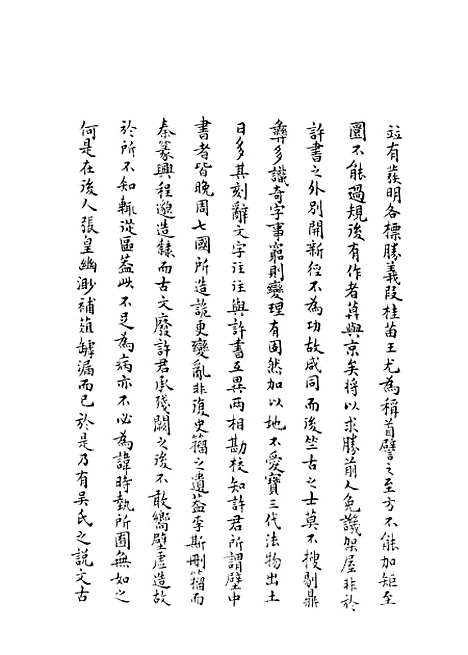 竝有蕟明各標勝義段桂苗王尤為稱首譬之至方不能加矩至
圜不能過規後有作者莫與京矣將以求勝前人免譏架屋非於
許書之外別開新徑不為功故咸同而後竺古之士莫不搜剔鼎
彝多識奇字事窮則變理有固然加以地不愛寶三代法物出土
日多其刻辭文字往往與許書互異兩相勘校知許君所謂壁中
書者皆晚周七國所造詭更變亂非復史籀之遺葢李斯刪籀而
秦篆興程邈造隸而古文廢許君承殘闕之後不敢嚮壁虛造故
於所不知輒從區葢此不足為病亦不必為諱時埶所囿無如之
何是在後人張皇幽渺補苴罅漏而已於是乃有吳氏之說文古